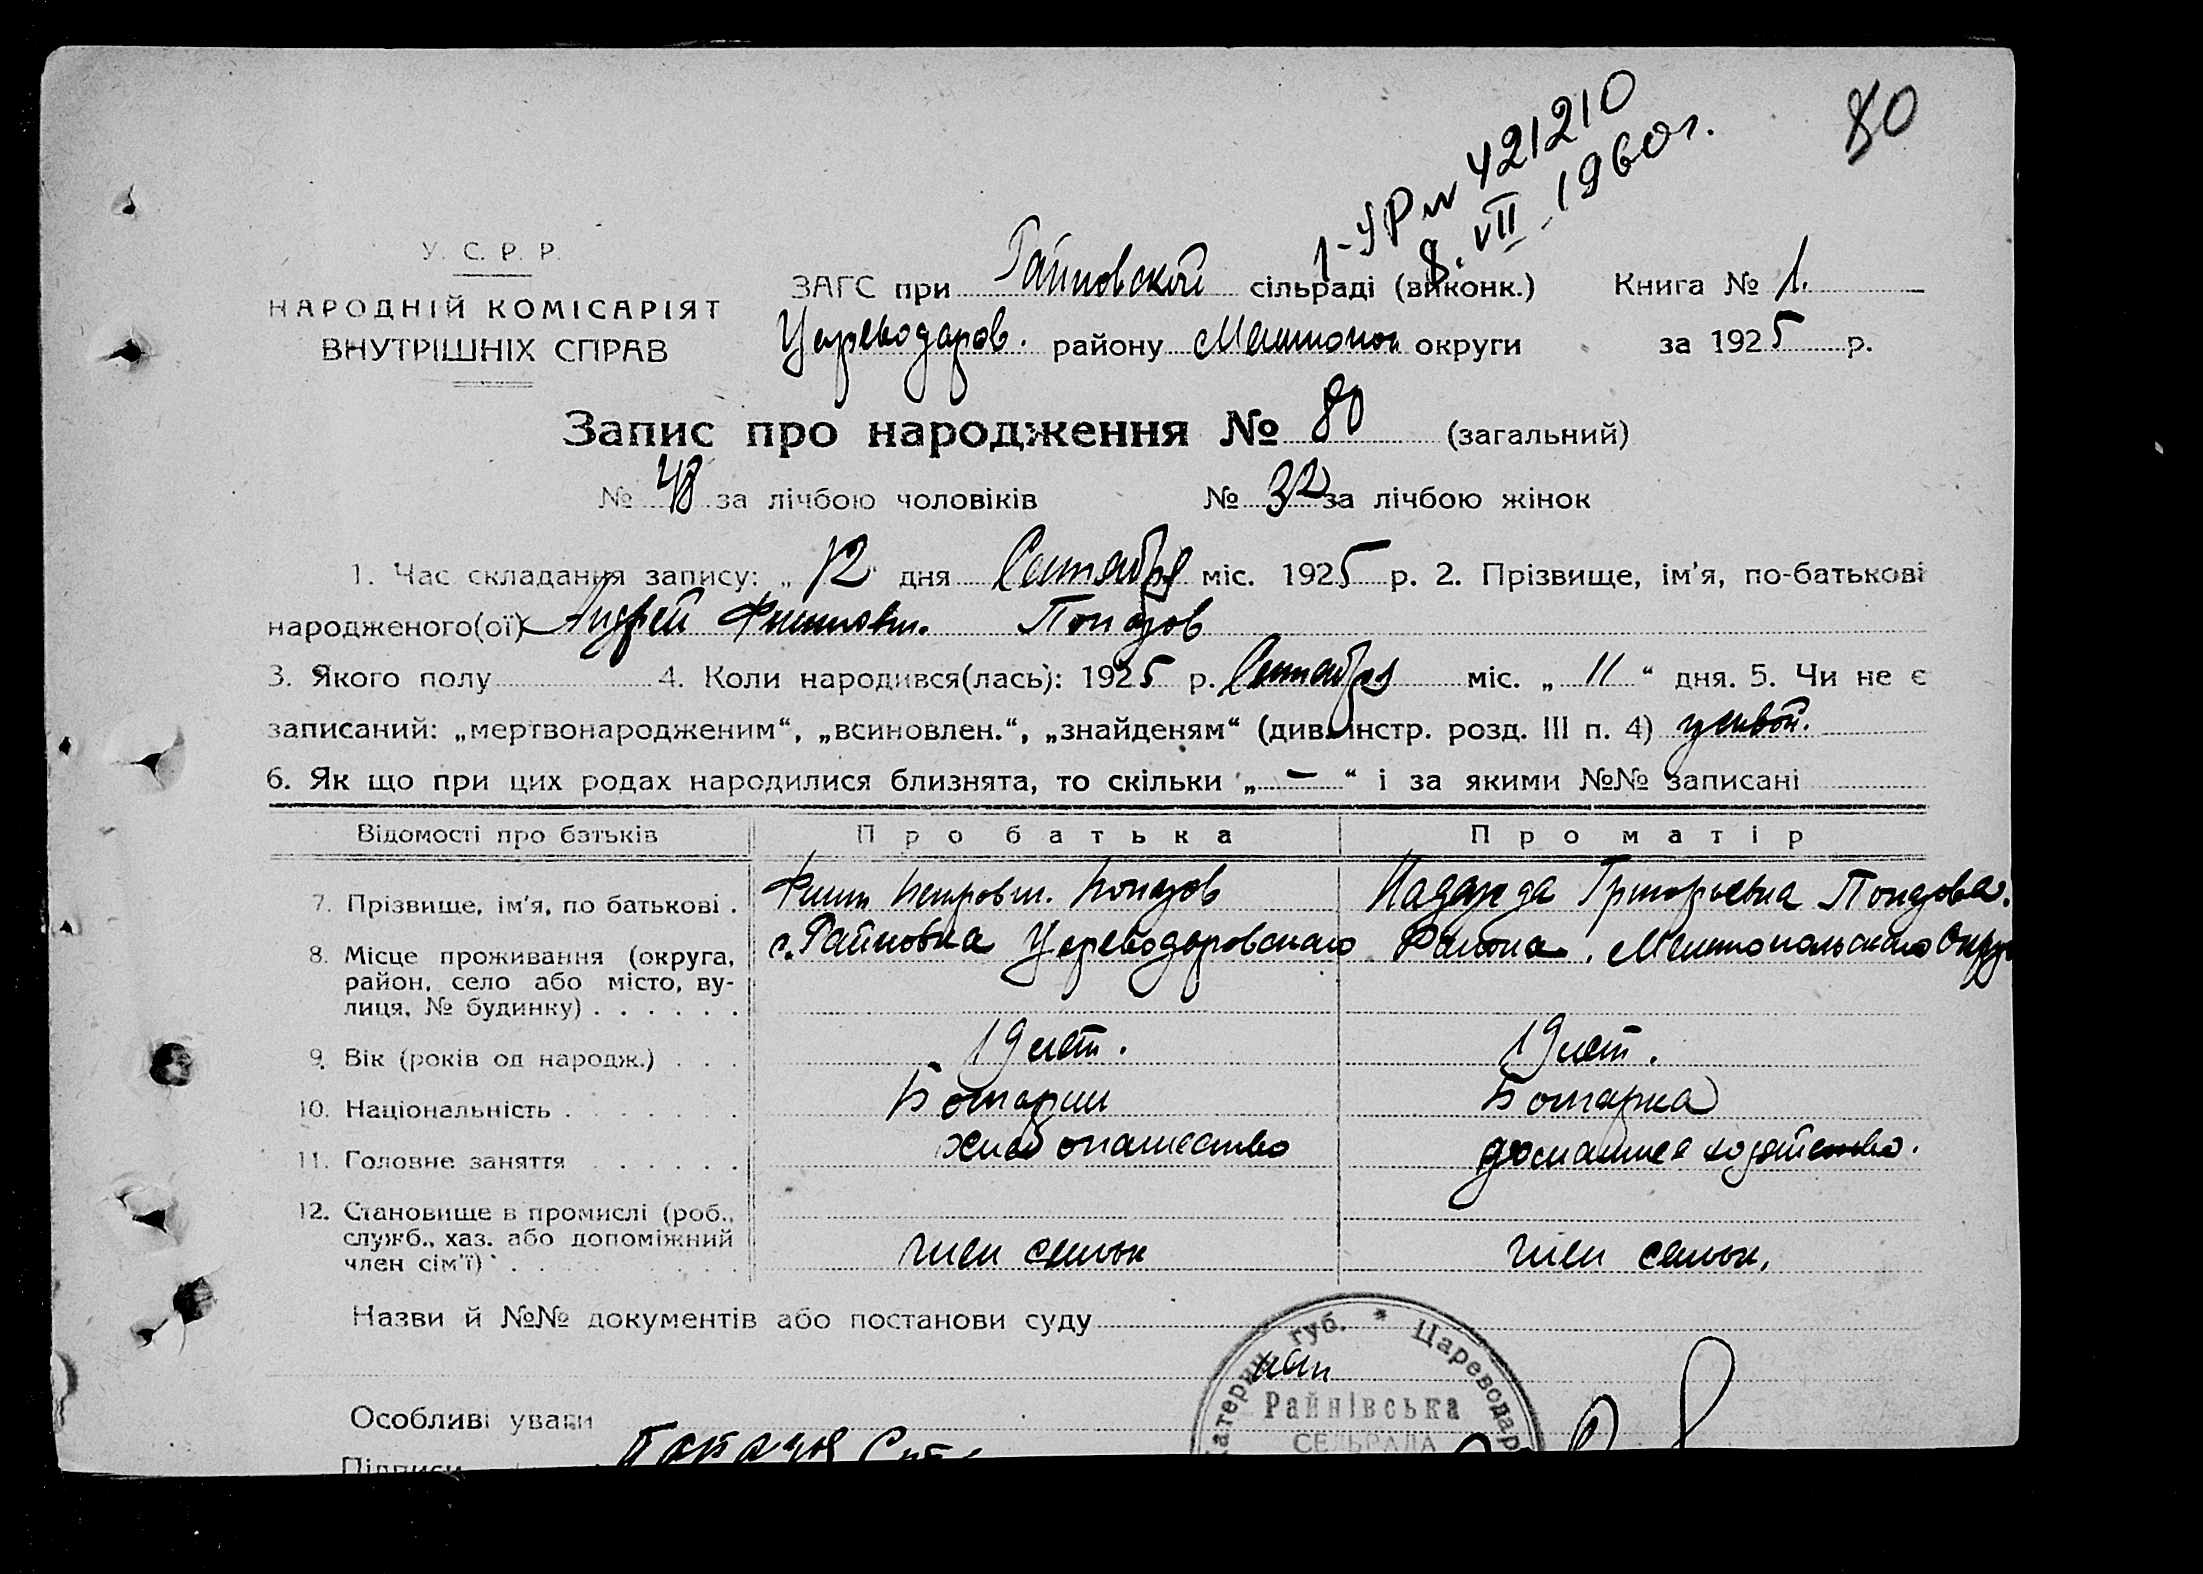 80
1-УР № 421210
8. VII - 1960 г.
У. С. Р. Р.
НАРОДНІЙ КОМІСАРІЯТ
ВНУТРІШНІХ СПРАВ
ЗАГС при Райновской сільраді (виконк.) Книга № 1.
Цареводаров. району Мелитопол округи за 1925 р.
Запис про народження № 80 (загальний)
№ 48 за лічбою чоловіків № 32 за лічбою жінок
1. Час складання запису: „12“ дня Сентября міс. 1925 р. 2. Прізвище, ім’я, по-батькові
народженого(ої) Андрей Филипович.
3. Якого полу 4. Коли народився(лась): 1925 р. Сентября міс. „11“ дня. 5. Чи не є
записаний: „мертвонародженим“, „всиновлен.“, „знайденям“ (див. інстр. розд. III п. 4)
6. Як що при цих родах народилися близнята, то скільки „—“ і за якими №№ записані
Відомості про батьків Про батька Про матір
7. Прізвище, ім’я, по батькові . Филип Петрович. Надежда Григорьевна
8. Місце проживання (округа, район, село або місто, ву-лиця, № будинку) . . . . . . с. Райновка Цареводаровскаго Района. Мелитопольскаго Округ
9. Вік (років од народж.) . . . 19 лет. 19 лет.
10. Національність . . . . . . . Болгарин Болгарка
11. Головне заняття . . . . . . хлебопашество домашнее хозяйство.
12. Становище в промислі (роб., служб., хаз. або допоміжний член сім’ї) . . . . . . . член семьи член семьи.
Назви й №№ документів або постанови суду
нет
Катерин. губ. * Цареводар
Райнівська
СЕЛЬРАДА
Особливі уваги
Підписи